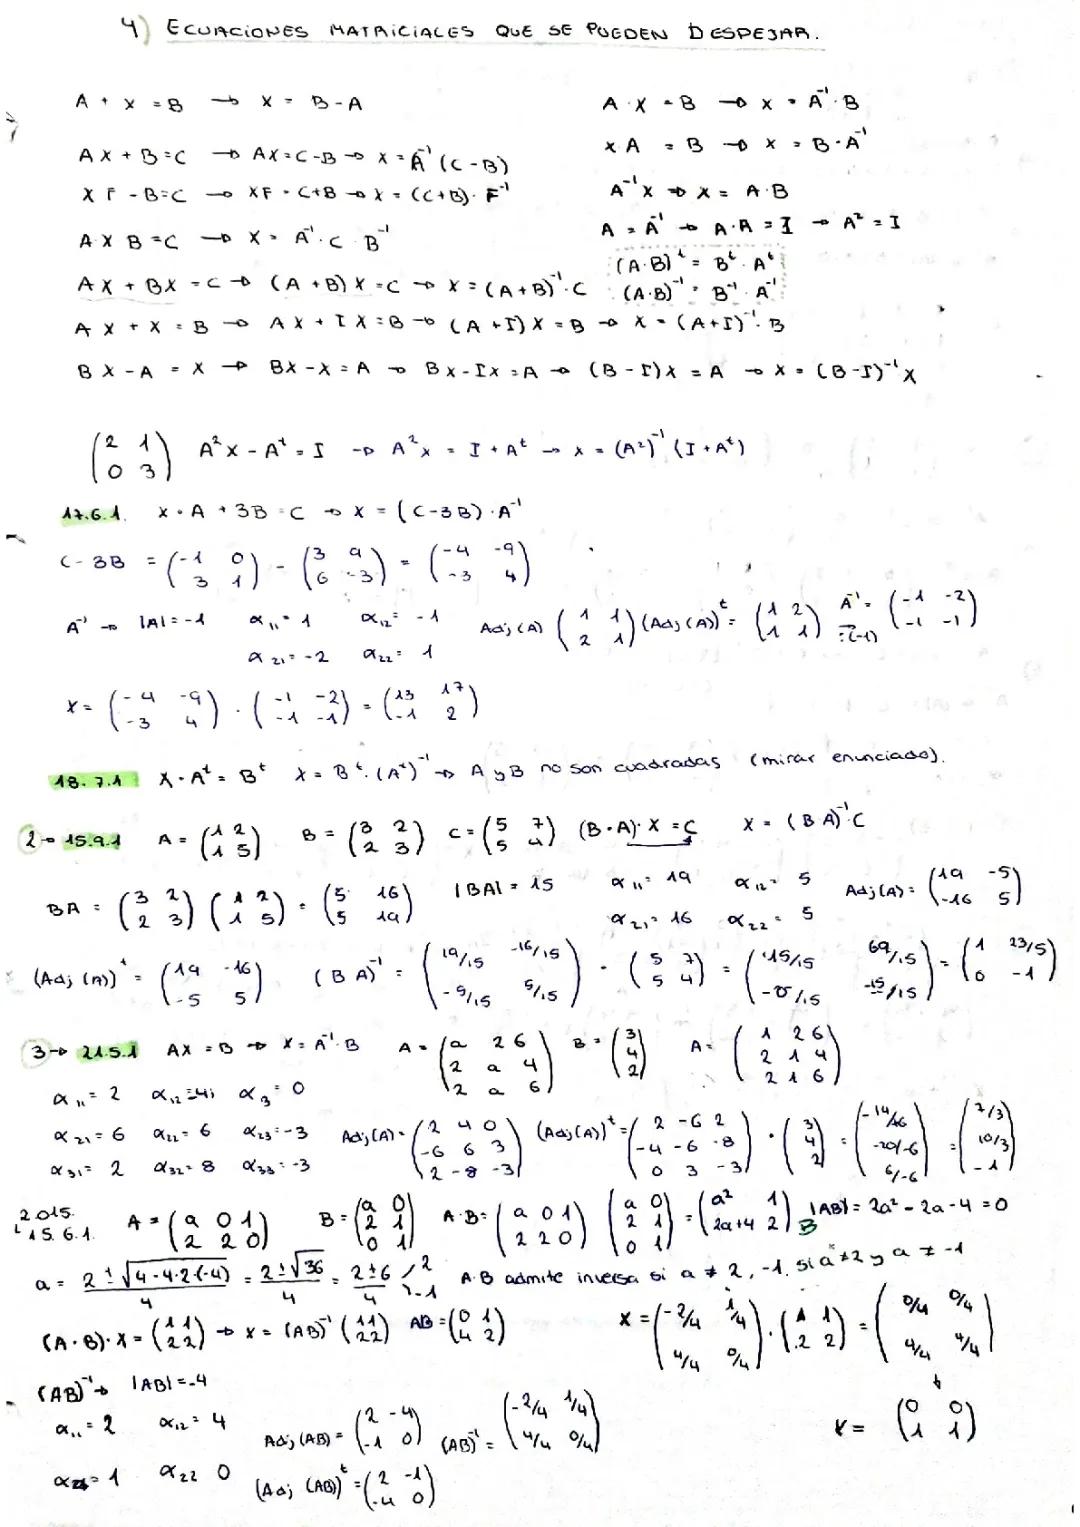 4) ECUACIONES MATRICIALES QUE SE PUEDEN DESPEJAR.
A + X = B → X = B - A
A · X = B → X = A⁻¹ · B
X · A = B → X = B · A⁻¹
AX + B = C → AX = C - B → X = A⁻¹ (C - B)
XF - B = C → XF = C + B → X = (C + B) · F⁻¹
A⁻¹ X → X = A · B
A X B = C → X = A⁻¹ · C B⁻¹
A = A⁻¹ → A · A = I → A² = I
(A·B)ᵗ = Bᵗ · Aᵗ
AX + BX = C → (A + B) X = C → X = (A + B)⁻¹ · C
(A·B)⁻¹ = B⁻¹ · A⁻¹
A X + X = B → AX + IX = B → (A + I) X = B → X = (A + I)⁻¹ · B
BX - A = X → BX - X = A → BX - IX = A → (B - I) X = A → X = (B - I)⁻¹ X
(2 1 / 0 3) A²X - Aᵗ = I → A²X = I + Aᵗ → X = (A²)⁻¹ (I + Aᵗ)
17.6.1. X · A + 3B = C → X = (C - 3B) · A⁻¹
C - 3B = (-1 0 / 3 1) - (3 9 / 6 -3) = (-4 -9 / -3 4)
A⁻¹ → |A| = -1 α₁₁ = 1 α₁₂ = -1 Adj(A) (1 1 / 2 1) (Adj(A))ᵗ = (1 2 / 1 1) A⁻¹ = :(-1) (-1 -2 / -1 -1)
α₂₁ = -2 α₂₂ = 1
X = (-4 -9 / -3 4) · (-1 -2 / -1 -1) = (13 17 / -1 2)
18.7.1 X · Aᵗ = Bᵗ X = Bᵗ · (Aᵗ)⁻¹ → A y B no son cuadradas (mirar enunciado).
2 → 15.9.1 A = (1 2 / 1 5) B = (3 2 / 2 3) C = (5 7 / 5 4) (B·A) · X = C X = (BA)⁻¹ C
BA = (3 2 / 2 3) (1 2 / 1 5) = (5 16 / 5 19) |BA| = 15 α₁₁ = 19 α₁₂ = 5 Adj(A) = (19 -5 / -16 5)
α₂₁ = 16 α₂₂ = 5
(Adj(A))ᵗ = (19 -16 / -5 5) (BA)⁻¹ = (19/15 -16/15 / -5/15 5/15) · (5 7 / 5 4) = (15/15 69/15 / -0/15 -15/15) = (1 23/5 / 0 -1)
3 → 21.5.1 AX = B → X = A⁻¹ · B A = (a 2 6 / 2 a 4 / 2 a 6) B = (3 / 4 / 2) A = (1 2 6 / 2 1 4 / 2 1 6)
α₁₁ = 2 α₁₂ = 4 α₃ = 0
α₂₁ = 6 α₂₂ = 6 α₂₃ = -3 Adj(A) = (2 4 0 / -6 6 3 / 2 -8 -3) (Adj(A))ᵗ = (2 -6 2 / -4 -6 -8 / 0 3 -3) · (3 / 4 / 2) = (-14/-6 / -20/-6 / 6/-6) = (7/3 / 10/3 / -1)
α₃₁ = 2 α₃₂ = 8 α₃₃ = -3
2015.
15.6.1. A = (a 0 1 / 2 2 0) B = (a 0 / 2 1 / 0 1) A·B = (a 0 1 / 2 2 0) (a 0 / 2 1 / 0 1) = (a² 1 / 2a+4 2) |AB| = 2a² - 2a - 4 = 0
a = 2 ± √(4 - 4·2·(-4)) / 4 = 2 ± √36 / 4 = 2 ± 6 / 4 2 -1 A·B admite inversa si a ≠ 2, -1. si a ≠ 2 y a ≠ -1
(A·B) · X = (1 1 / 2 2) → X = (AB)⁻¹ (1 1 / 2 2) AB = (0 1 / 4 2) X = (-2/4 1/4 / 4/4 0/4) · (1 1 / 2 2) = (0/4 0/4 / 4/4 4/4)
(AB)⁻¹ → |AB| = -4
α₁₁ = 2 α₁₂ = 4 Adj(AB) = (2 -4 / -1 0) (AB)⁻¹ = (-2/4 1/4 / 4/4 0/4) X = (0 0 / 1 1)
α₂₁ = 1 α₂₂ 0 (Adj(AB))ᵗ = (2 -1 / -4 0)